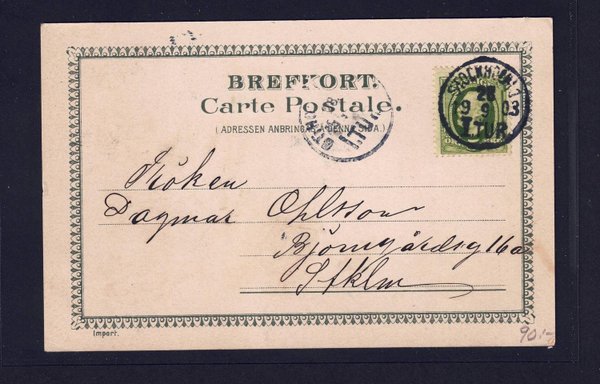 BREFKORT.
Carte Postale.
( ADRESSEN ANBRINGAS DENNA SIDA.)
STOCKHOLM 1
28
9 9 03
1 TUR.
1 TUR
Fröken
Dagmar Ohlsson
Björngårdsg 16a
Stklm
Import.
90:-